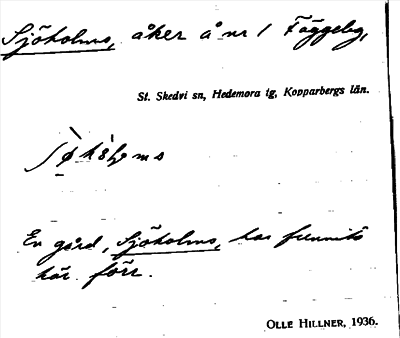 Sjöholms, åker å nr 1 Fäggeby,
St. Skedvi sn, Hedemora tg, Kopparbergs län.
En gård, Sjöholms, har funnits
här förr.
OLLE HILLNER, 1936.